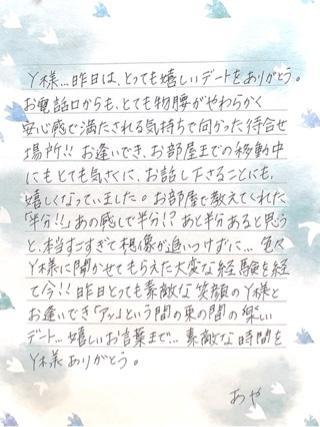 Y様…昨日は、とっても嬉しいデートをありがとう。
お電話口からも、とても物腰がやわらかく
安心感で満たされる気持ちで向かった待合せ
場所!! お逢いでき、お部屋までの移動中
にもとても気さくに、お話し下さることにも、
嬉しくなっていました。お部屋で教えてくれた
「半分!!」あの感じで半分!? あと半分あると思う
と、本当すごすぎて想像が追いつけずに… 色々
Y様に聞かせてもらえた大変な経験を経
て今!! 昨日とっても素敵な笑顔のY様と
お逢いでき「アッ」という間の束の間の楽しい
デート… 嬉しいお言葉まで… 素敵な時間を
Y様ありがとう。
あや